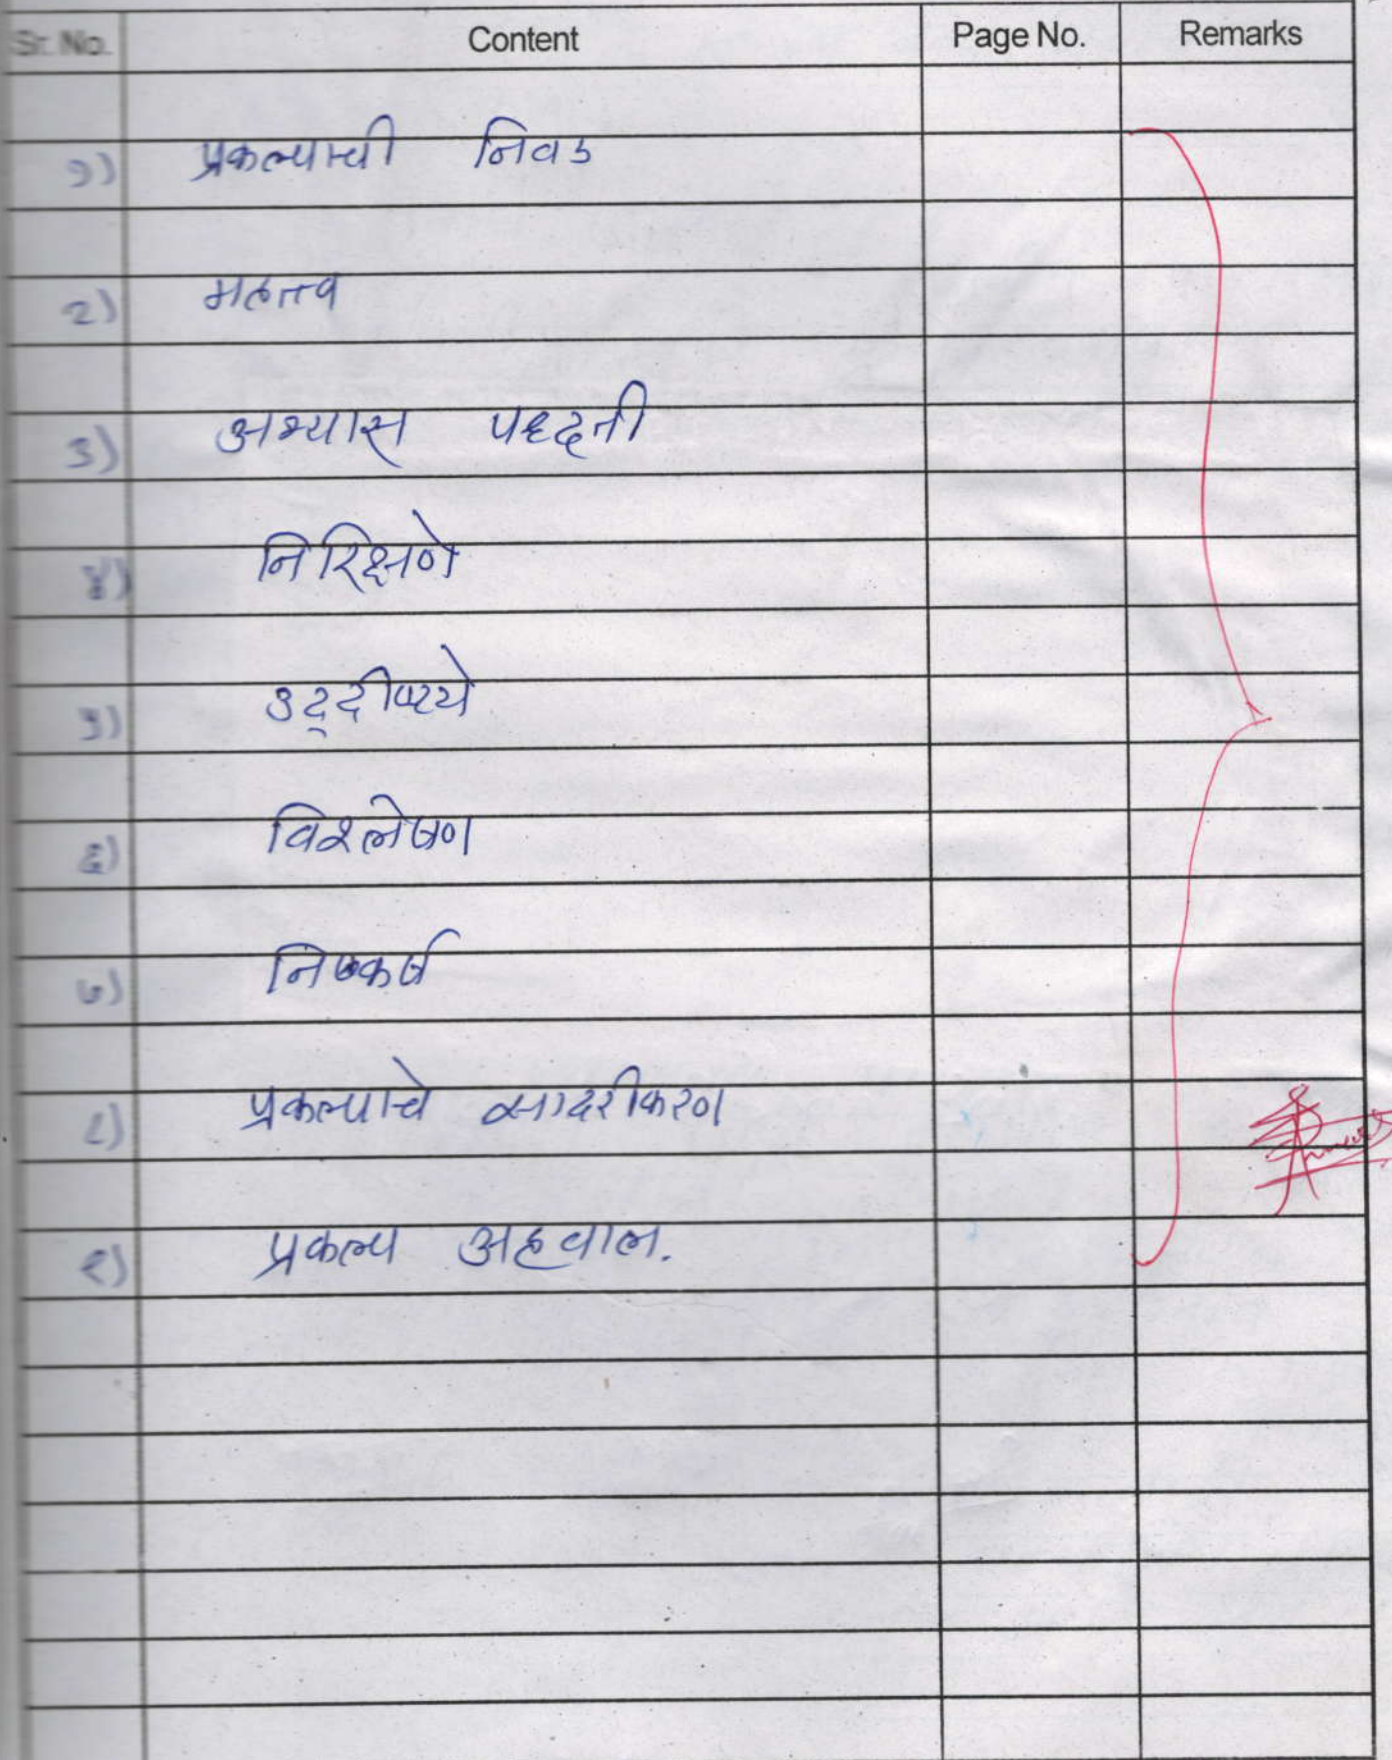 Sr. No. Content Page No. Remarks
१) प्रकल्पाची निवड
२) महत्त्व
३) अभ्यास पध्दती
४) निरिक्षणे
५) उद्दीष्टये
६) विश्लेषण
७) निष्कर्ष
८) प्रकल्पाचे सादरीकरण
९) प्रकल्प अहवाल.